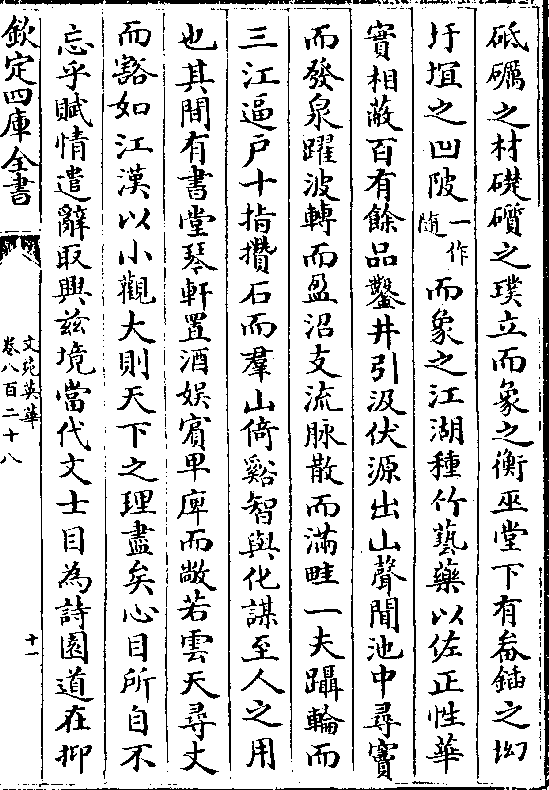 砥礪之材礎礩之璞立而象之衡巫堂下有畚鍤之坳
圩埴之凹陂一作隨而象之江湖種竹藝藥以佐正性華
實相蔽百有餘品鑿井引汲伏源出山聲聞池中尋竇
而發泉躍波轉而盈沼支流脉散而滿畦一夫躡輪而
三江逼戸十指攢石而羣山倚谿智與化謀至人之用
也其間有書堂琴軒置酒娱賓卑庳而敞若雲天尋丈
而豁如江漢以小觀大則天下之理盡矣心目所自不
忘乎賦情遣辭取興兹境當代文士目為詩園道在抑
欽定四庫全書
文苑英華
卷八百二十八
十一